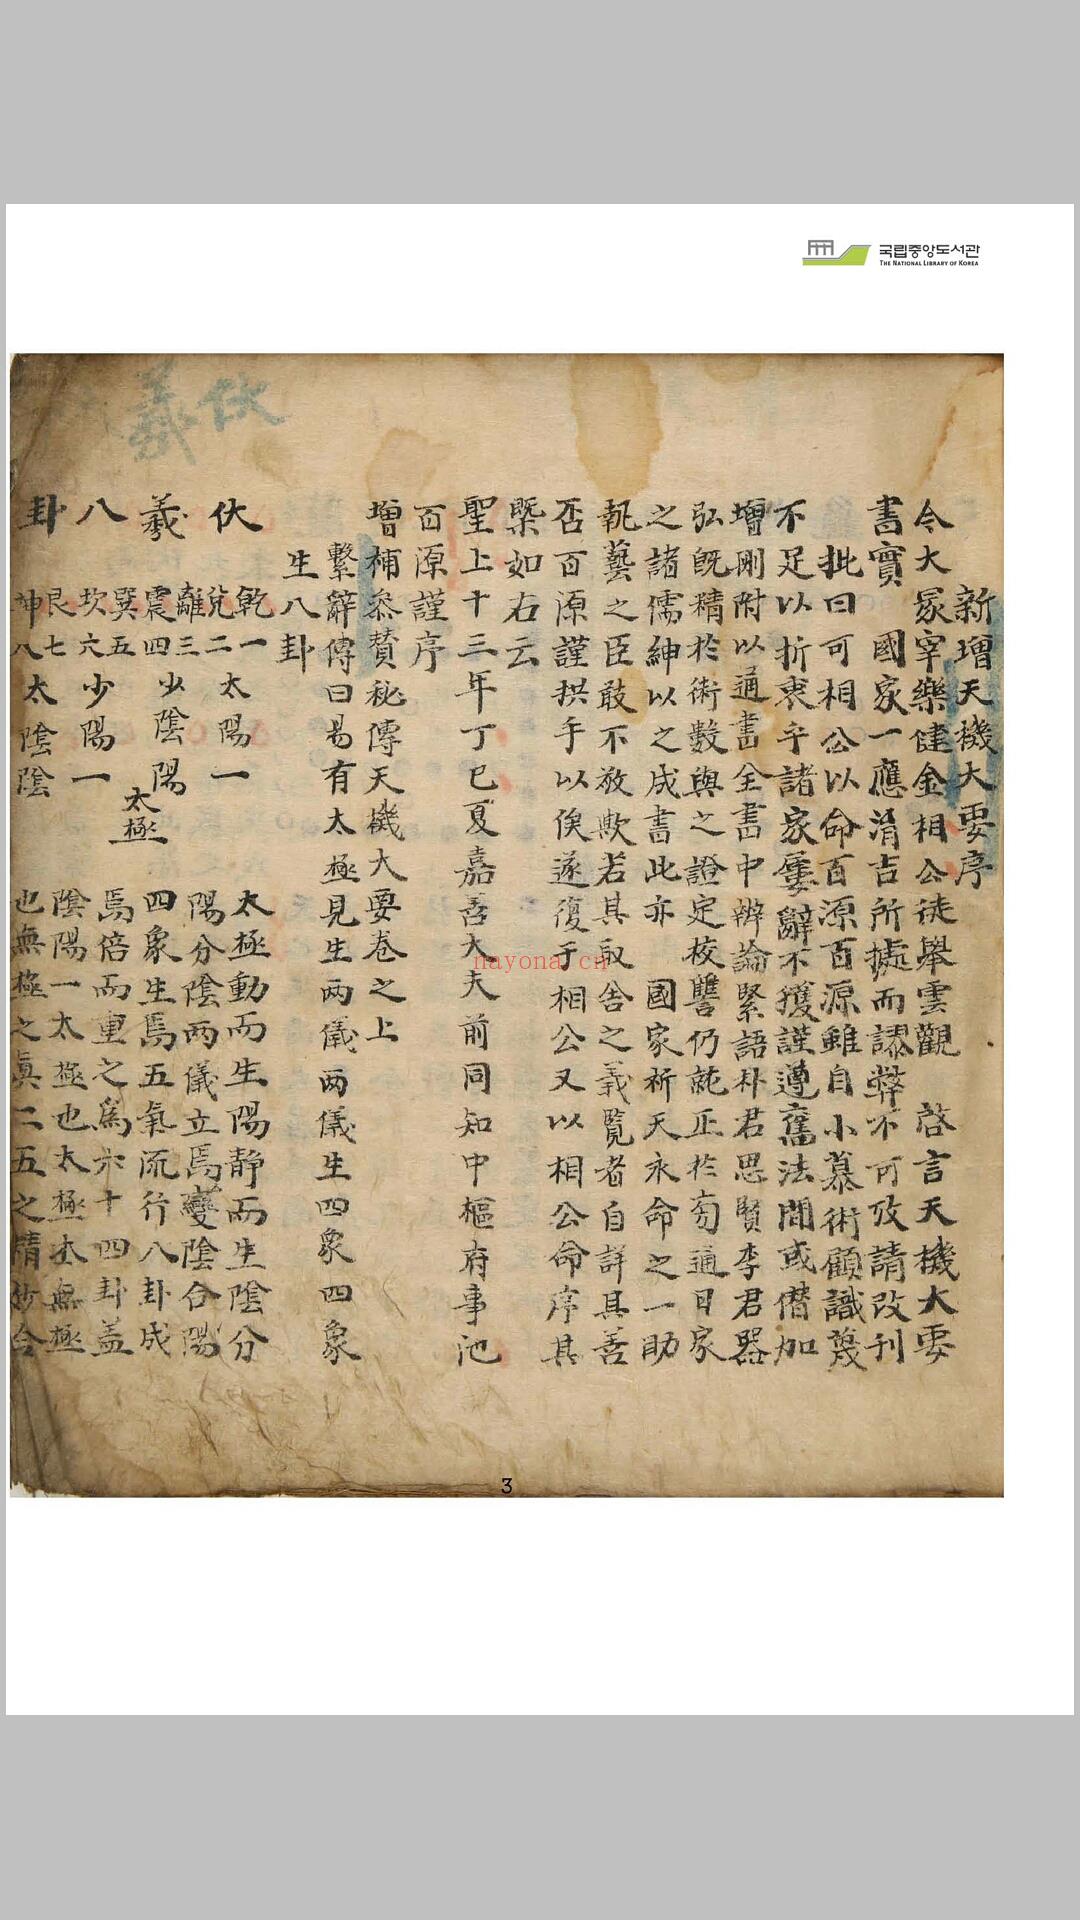 국립중앙도서관
THE NATIONAL LIBRARY OF KOREA
伏羲
新增天機大要序
今大冢宰樂健金相公徒舉雲觀 啓言天機大要
書實 國家一應涓吉所據而謬弊不可攷請改刊
批曰可相公以命百源百源雖自小慕術顧識蔑
不足以折衷乎諸家屢辭不獲謹遵舊法間或僭加
增刪附以通書全書中辨論緊語朴君思賢李君器
弘旣精於術數與之證定校讐仍就正於旁通日家
之諸儒紳以之成書此亦 國家祈天永命之一助
執藝之臣敢不敬歟若其取舍之義覽者自詳其善
否百源謹拱手以俟遂復于相公又以相公命序其
槩如右云
聖上十三年丁巳夏嘉善大夫前同知中樞府事池
百源謹序
增補叅贊秘傳天機大要卷之上
繫辭傳曰易有太極見生兩儀兩儀生四象四象
生八卦
伏羲八卦
乾一
兌二
離三
震四
巽五
坎六
艮七
坤八
太陽
少陰
少陽
太陰
一陽
一陰
太極
太極動而生陽靜而生陰分
陽分陰兩儀立焉變陰合陽
四象生焉五氣流行八卦成
焉倍而重之爲六十四卦盖
陰陽一太極也太極本無極
也無極之眞二五之精妙合
nayona.cn
3